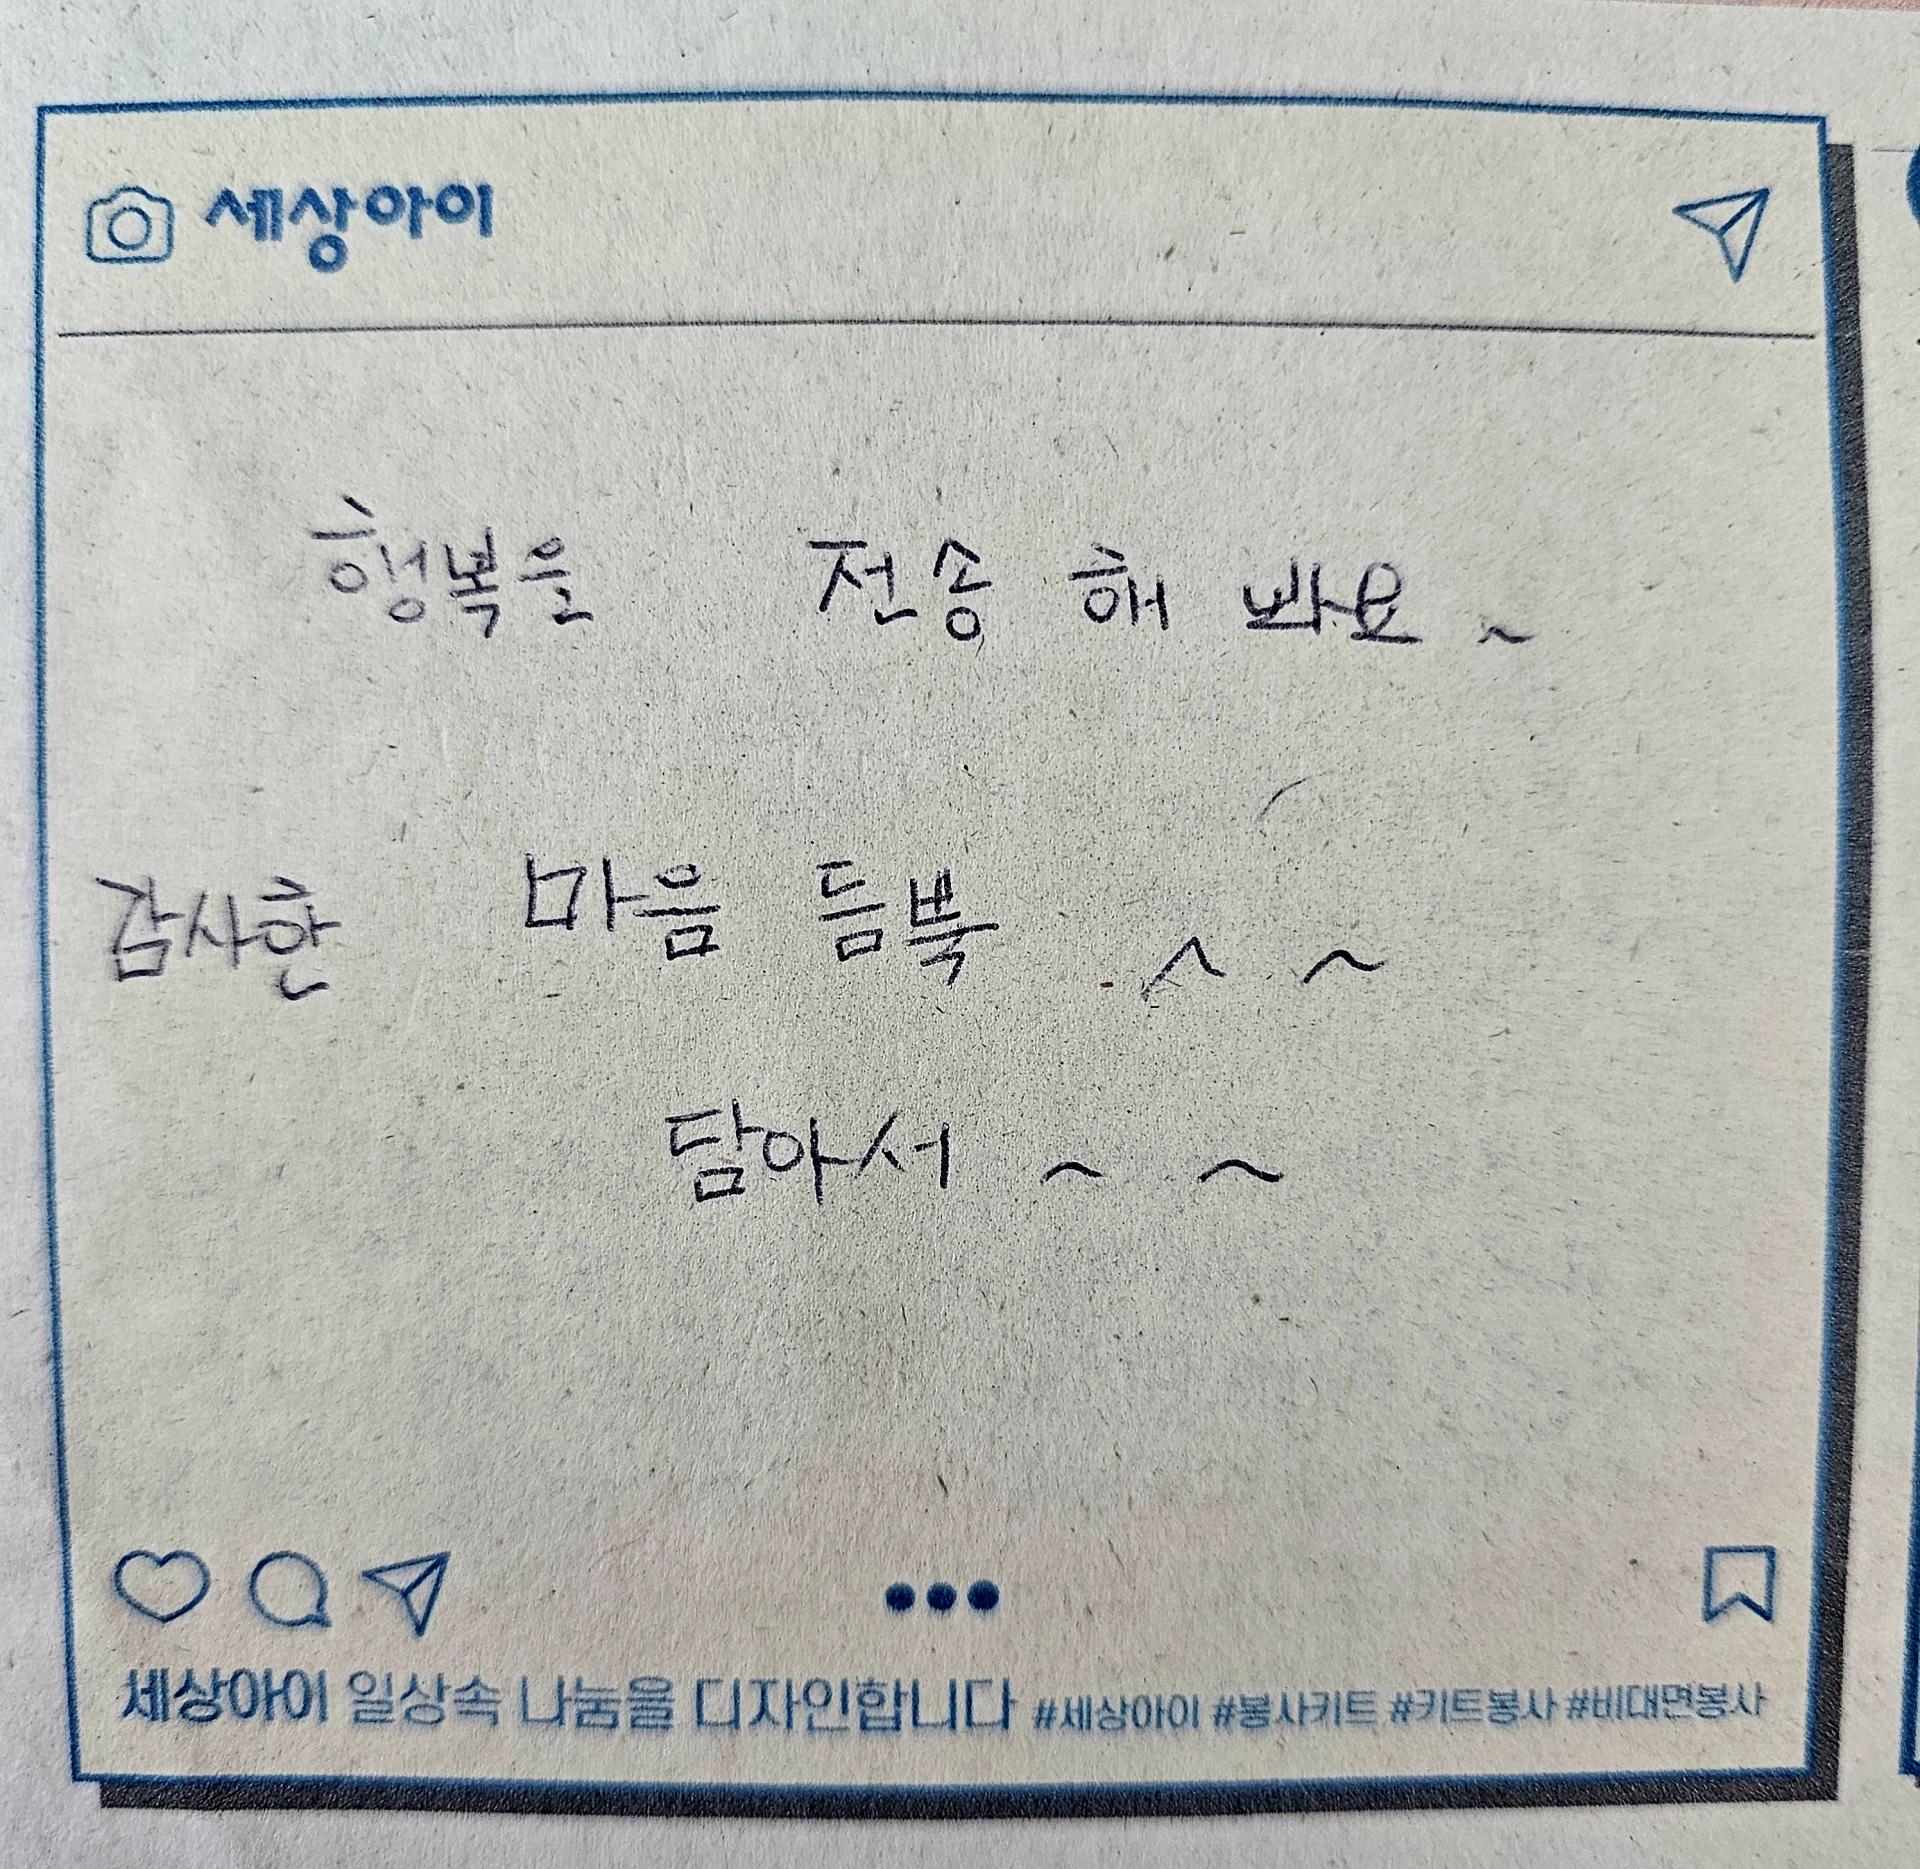 세상아이
행복을 전송 해 봐요 ~
감사한 마음 듬뿍 ~ ~
담아서 ~ ~
세상아이 일상속 나눔을 디자인합니다 #세상아이 #봉사키트 #키트봉사 #비대면봉사